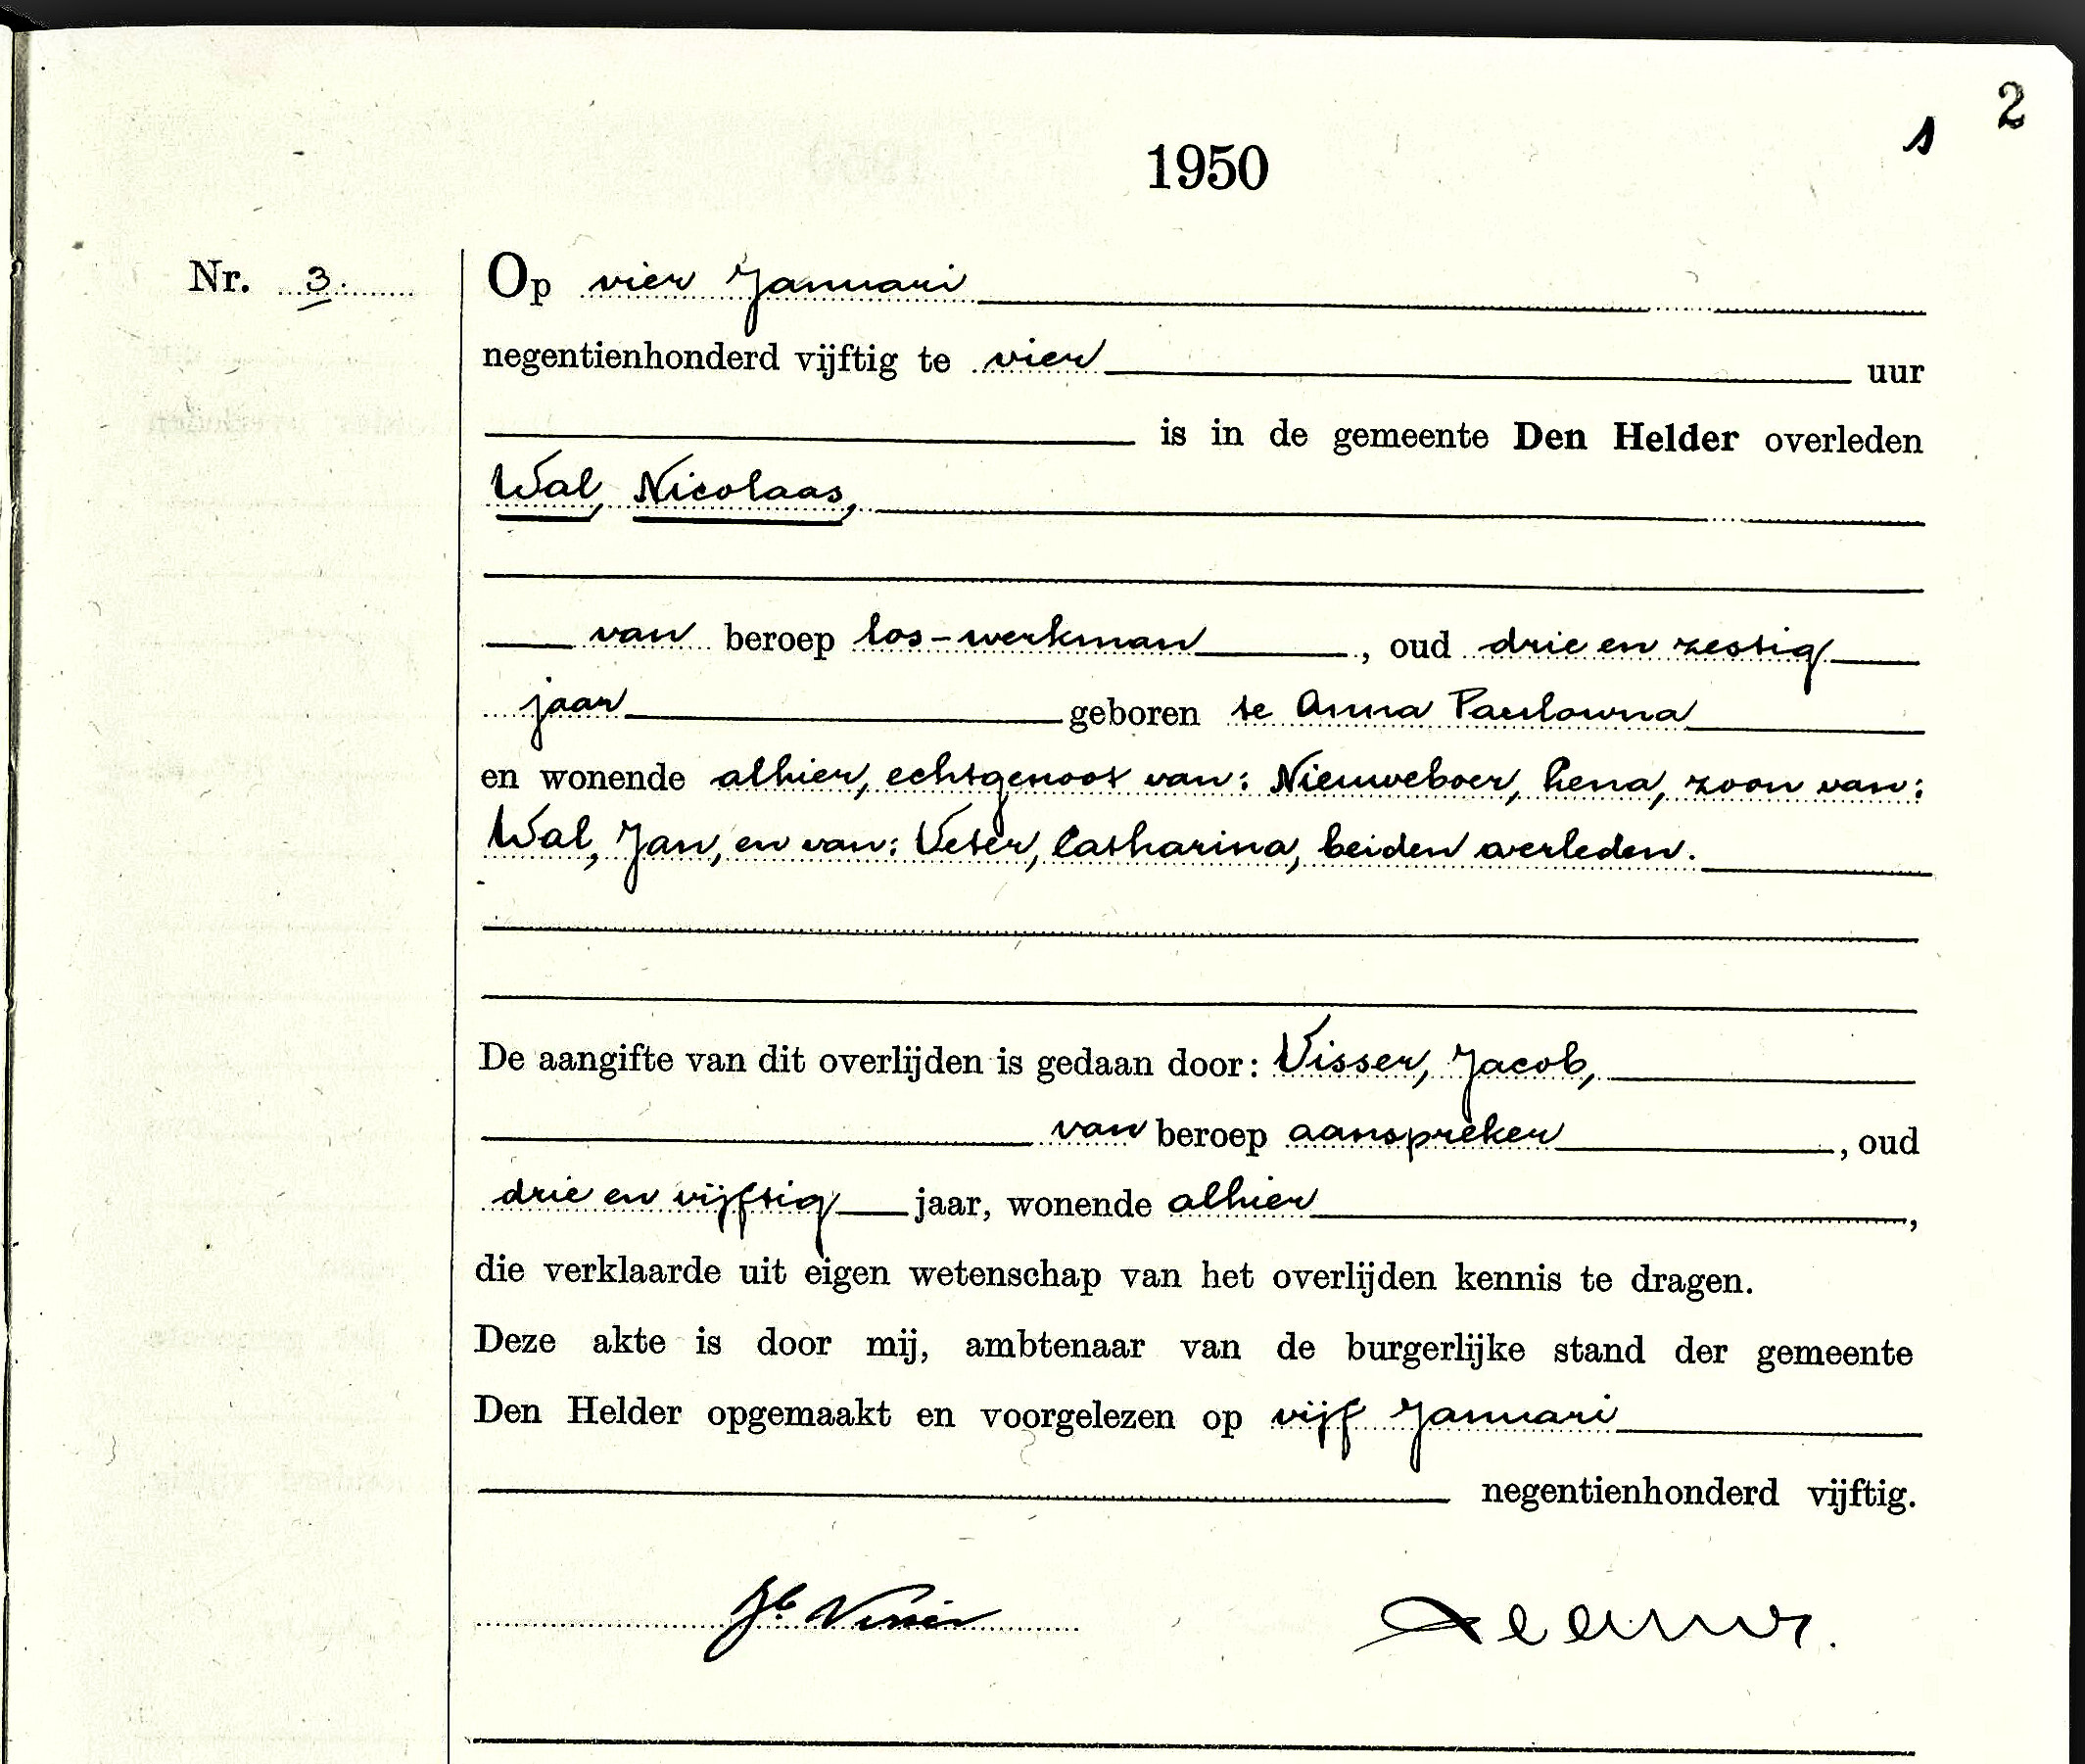 2
1
1950
Nr. 3.
Op vier Januari
negentienhonderd vijftig te vier uur
is in de gemeente Den Helder overleden
Wal, Nicolaas,
van beroep los-werkman, oud drie en zestig
jaar geboren te Anna Paulowna
en wonende alhier, echtgenoot van: Nieuweboer, Lena, zoon van:
Wal, Jan, en van: Veter, Catharina, beiden overleden.
De aangifte van dit overlijden is gedaan door: Visser, Jacob,
van beroep aanspreker, oud
drie en vijftig jaar, wonende alhier,
die verklaarde uit eigen wetenschap van het overlijden kennis te dragen.
Deze akte is door mij, ambtenaar van de burgerlijke stand der gemeente
Den Helder opgemaakt en voorgelezen op vijf Januari
negentienhonderd vijftig.
Jb Visser